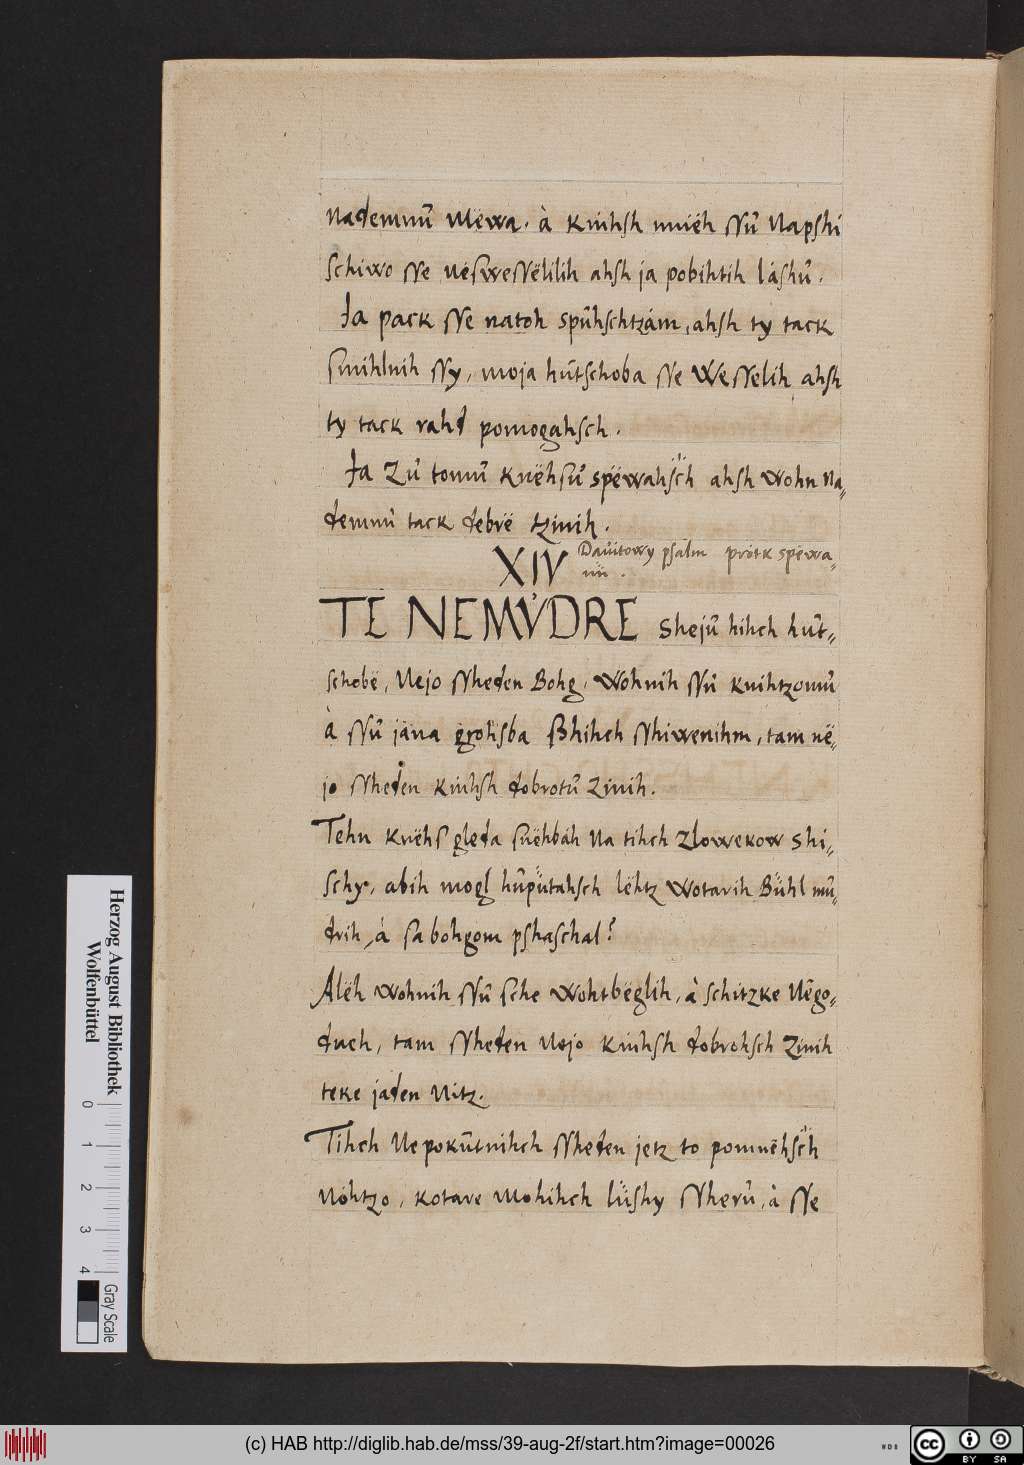 nademnů Mëwa. à knihsh mniëh ſſů Napshi
schiwo ſſe nëſweſſëlilih ahsh ja pobihtih làshů.
Ja pack ſſe natoh spůhschtzám, ahsh ty tack
ſmihlnih ſſy, moja hůtschoba ſſe Weſſelih, ahsh
ty tack rahd pomogahsch.
Ja Zů tomů knëhſů spëwahsch ahsh wohn na=
demnů tack debrë tzinih.
XIV Dauitowy psalm prötk spëwa=
nii.
TE NEMVDRE Shejů hihch hůt=
schobë, Nejo ſſheden Bohg, Wöhnih ſſů knihtzomů
à ſſů jäna grohsba Bhihch ſſhiwenihm, tam në=
jo ſſheden knihsh dobrotů Zinih.
Tehn knëhſ gleda ſnëhbäh na tihch Zlowekow Shi=
schy, abih mogl hůpütahsch lëhtz Wotarih Bühl mů=
drih, à ſa bohgom pshaschal?
Alëh wohnih ſſů ſche Wohtbëglih, à schitzke Nëgo=
dneh, tam ſſheden Nejo knihsh dobrohsch Zinih
teke jaden Nitz.
Tihch Nepokůtnihch ſſheden jetz to pomnëhsch
Nöhtzo, kotare Mohihch lüshy ſſherů, à ſſe
Herzog August Bibliothek
Wolfenbüttel
0 1 2 3 4
Gray Scale
(c) HAB http://diglib.hab.de/mss/39-aug-2f/start.htm?image=00026
WDB
cc BY SA